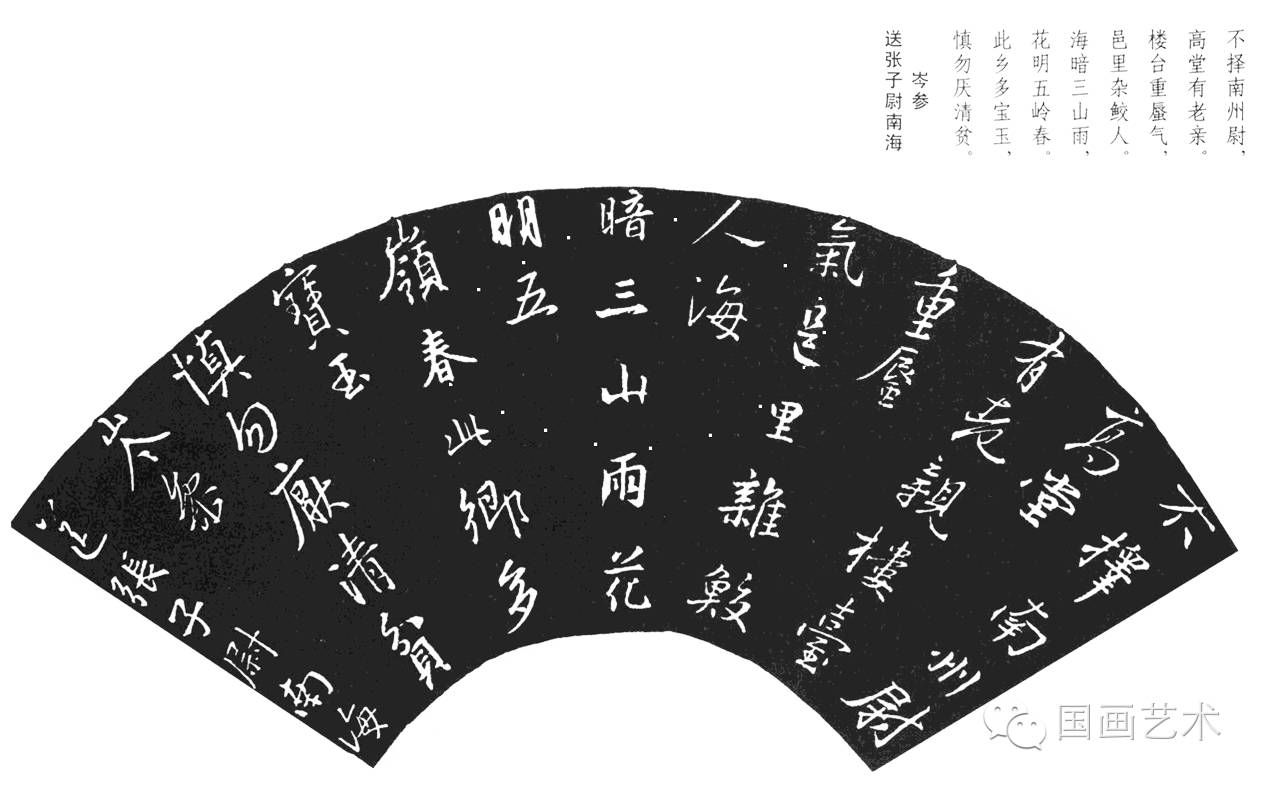 不择南州尉，
高堂有老亲。
楼台重蜃气，
邑里杂鲛人。
海暗三山雨，
花明五岭春。
此乡多宝玉，
慎勿厌清贫。
岑参
送张子尉南海
不擇南州尉
高堂
有老親樓臺
重蜃
氣邑里雜鮫
人海
暗三山雨花
明五
嶺春此鄉多
寶玉
慎勿厭清貧
岑參
送張子尉南海
国画艺术